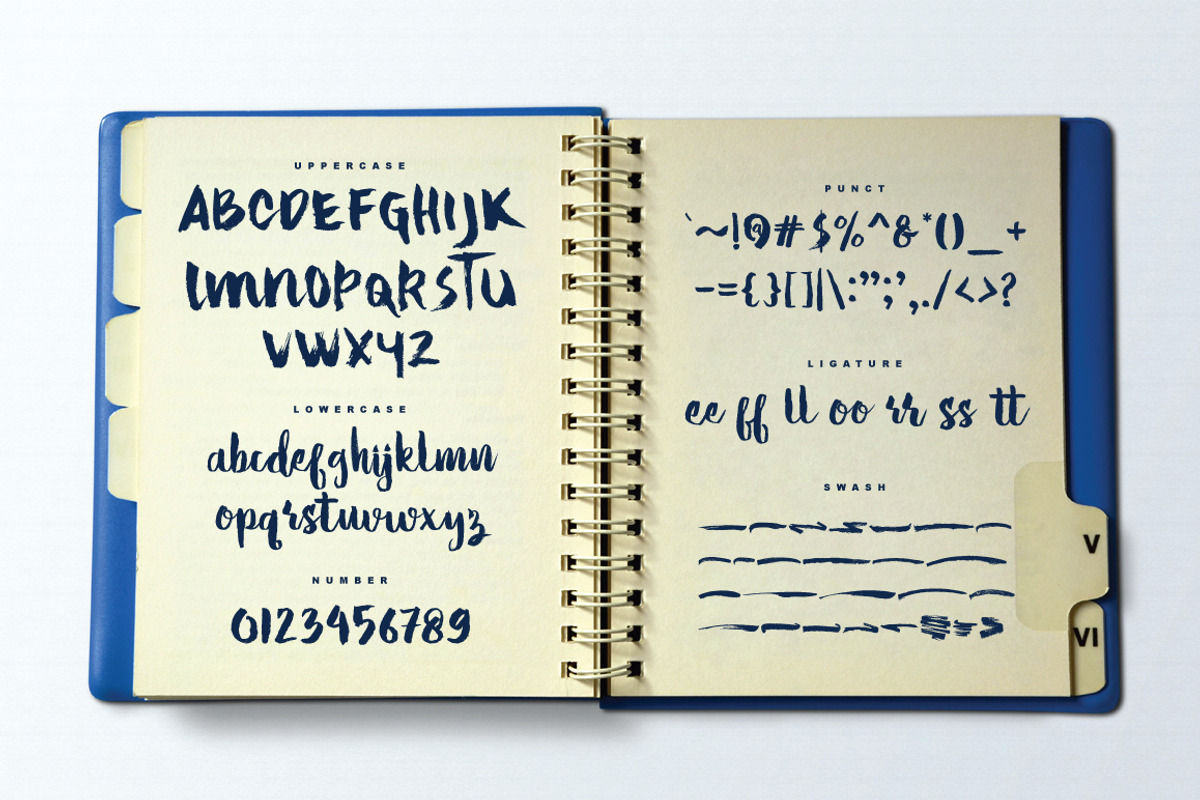 UPPERCASE
ABCDEFGHIJK
lmnopqrstu
vwxyz
LOWERCASE
abcdefghijklmn
opqrstuvwxyz
NUMBER
0123456789
PUNCT
`~!@#$%^&*()_+
-={}[]|\:”;’,./<>?
LIGATURE
ee ff ll oo rr ss tt
SWASH
V
VI